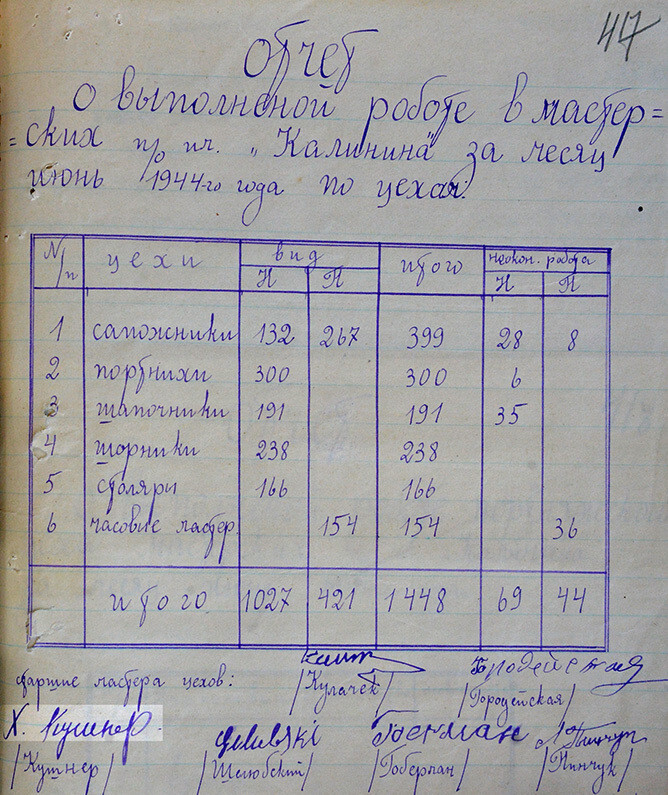 417
Отчет
О выполненой работе в мастер=
=ских п/о им. „Калинина" за месяц
июнь 1944-го года по цехам.
N/п цехи вид итого неокон. работа
Н П Н П
1 сапожники 132 267 399 28 8
2 портнихи 300 300 6
3 шапочники 191 191 35
4 шорники 238 238
5 столяры 166 166
6 часовые мастер. 154 154 36
итого 1027 421 1448 69 44
старшие мастера цехов: /Кулачек/ /Городейская/
Х. Кушнер Гоберман Пинчук
/Кушнер/ /Шелюбский/ /Гоберман/ /Пинчук/